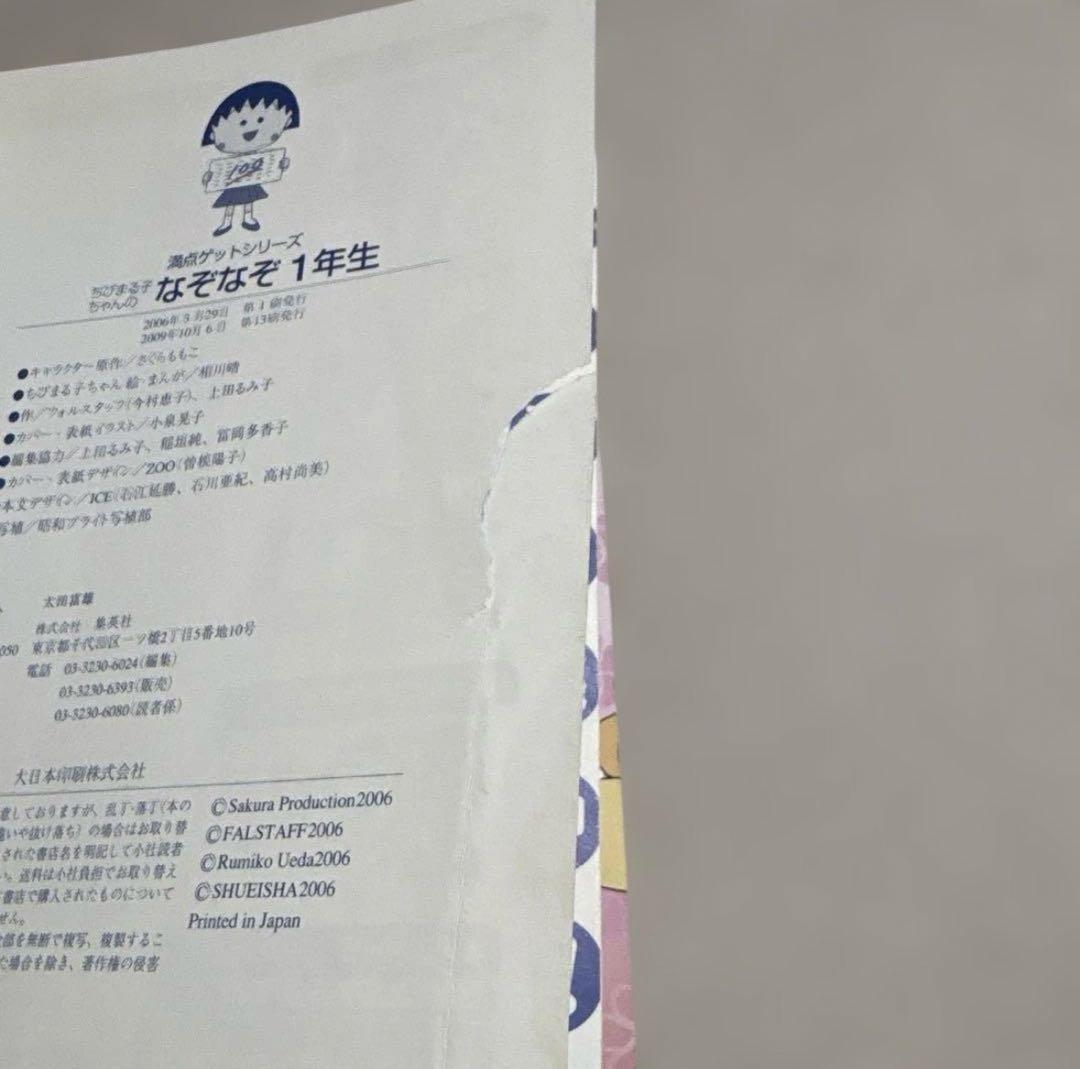 100
満点ゲットシリーズ
ちびまる子ちゃんの なぞなぞ1年生
2006年3月29日 第1刷発行
2009年10月6日 第13刷発行
●キャラクター原作／さくらももこ
●ちびまる子ちゃん 絵・まんが／相川晴
●作／フォルスタッフ(今村恵子)、上田るみ子
●カバー・表紙イラスト／小泉晃子
●編集協力／上田るみ子、稲垣純、富岡多香子
●カバー・表紙デザイン／ZOO(曽根陽子)
本文デザイン／ICE(石江延勝、石川亜紀、高村尚美)
写植／昭和ブライト写植部
人 太田富雄
株式会社 集英社
050 東京都千代田区一ツ橋2丁目5番地10号
電話 03-3230-6024(編集)
03-3230-6393(販売)
03-3230-6080(読者係)
大日本印刷株式会社
意しておりますが、乱丁・落丁(本の
違いや抜け落ち)の場合はお取り替
された書店名を明記して小社読者
い。送料は小社負担でお取り替え
書店で購入されたものについて
せん。
全部を無断で複写、複製するこ
た場合を除き、著作権の侵害
©Sakura Production2006
©FALSTAFF2006
©Rumiko Ueda2006
©SHUEISHA2006
Printed in Japan